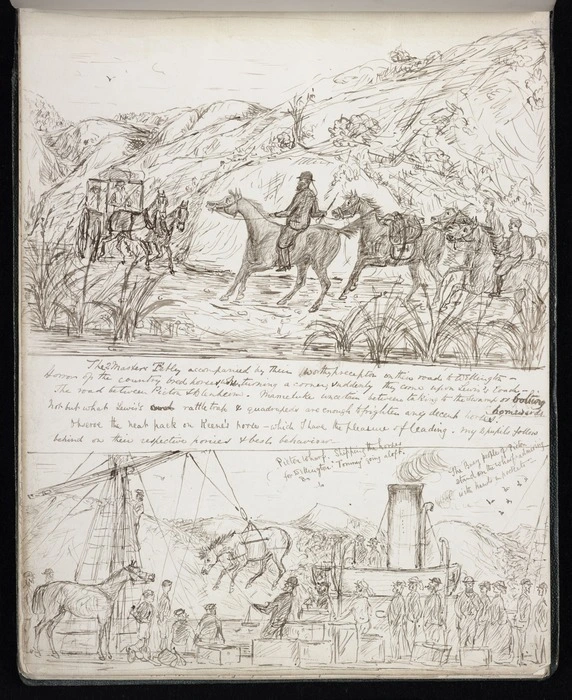 The 2 Masters Ebbly accompanied by their worthy preceptor on their road to Wellington –
Horror of the country bred horses turning a corner & suddenly they come upon Lewis's Coach –
The road between Picton & Blenheim. Mameluke uncertain between taking to the swamp or bolting homewards
Not but what Lewis's rattletrap & quadrupeds are enough to frighten any decent horses.
Observe the neat pack on Keene's horse – which I have the pleasure of leading. My 2 pupils follow
behind on their respective ponies & best behaviour
Picton Wharf. Shipping the horses
for Wellington. Tommy going aloft.
The Busy people of Picton
stand on the wharf admiring
with hands in pockets –